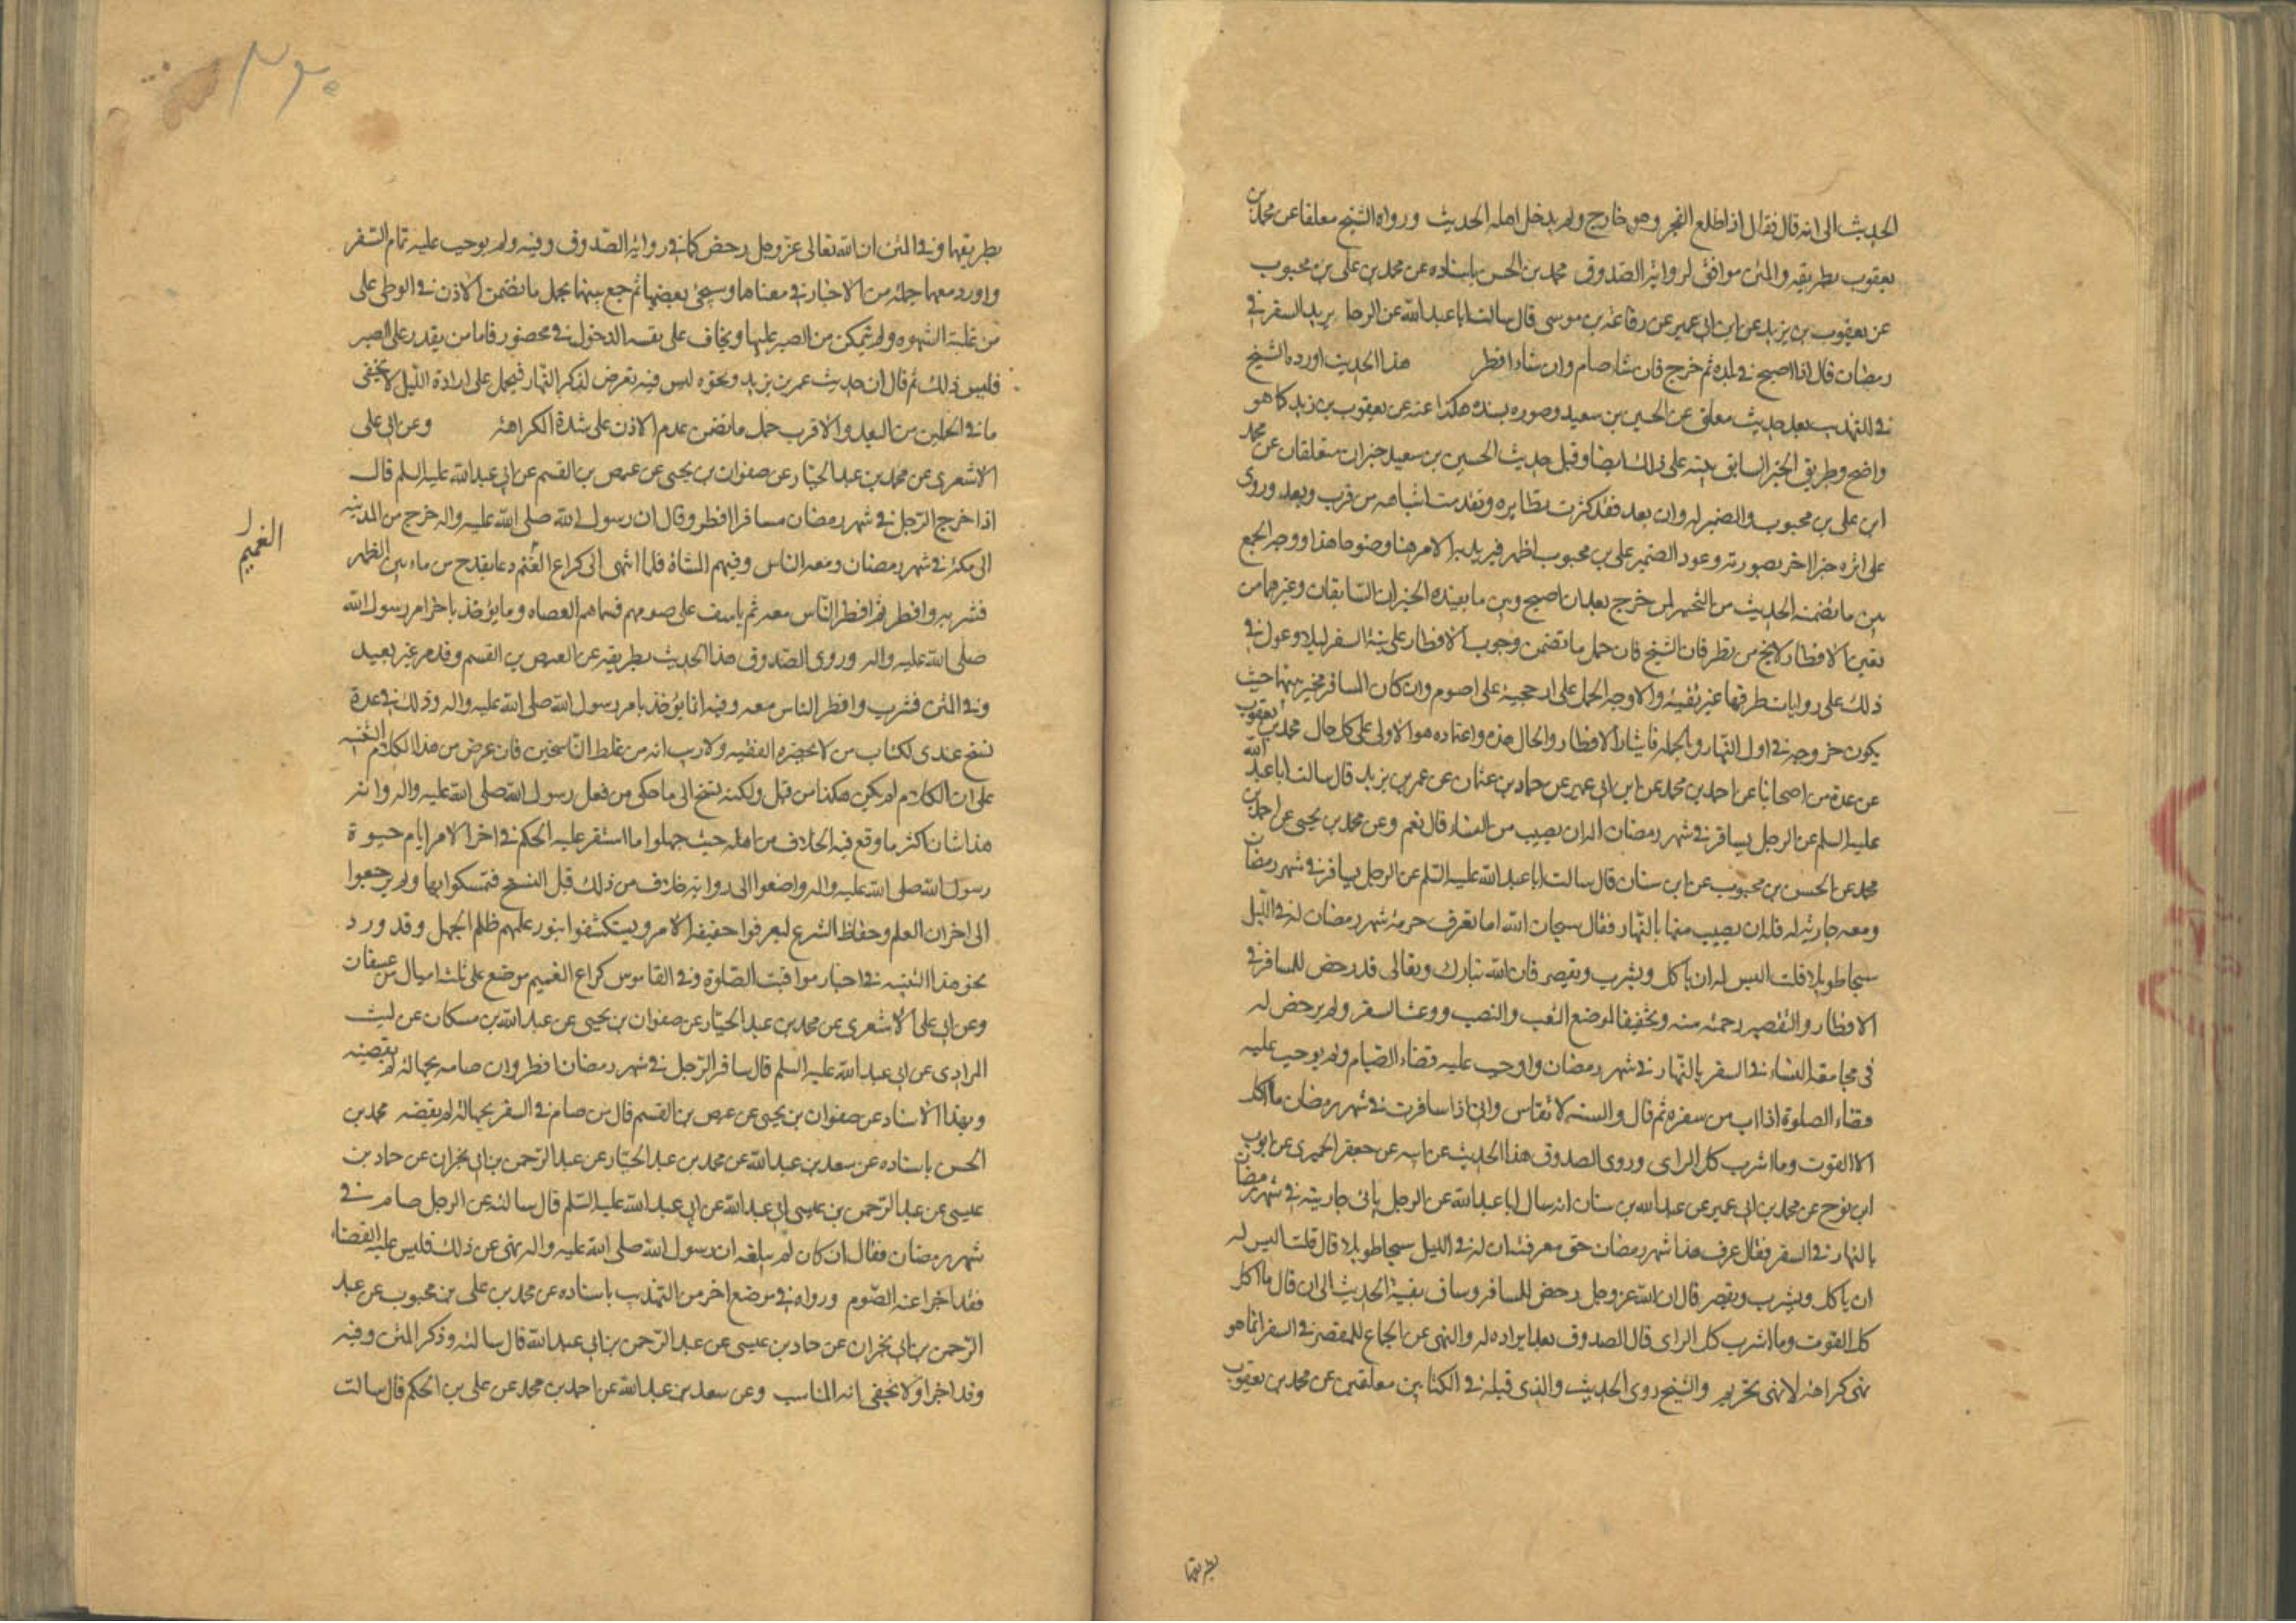 الحديث الى انه قال فقال اذا طلع الفجر وهو خارج ولم يدخل اهله الحديث ورواه الشيخ معلقا عن محمد بن
يعقوب بطريقه والمتن موافق لرواية الصدوق محمد بن الحسن باسناده عن محمد بن علي بن محبوب
عن يعقوب بن يزيد عن ابن ابي عمير عن رفاعة بن موسى قال سالت ابا عبد الله عن الرجل يريد السفر في
رمضان قال اذا اصبح في بلده ثم خرج فان شاء صام وان شاء افطر هذا الحديث اورده الشيخ
في التهذيب بعد حديث معلق عن الحسين بن سعيد وصورة سنده هكذا عنه عن يعقوب بن يزيد كما هو
واضح وطريق الخبر السابق بينه على ذلك ايضا وقبل حديث الحسين بن سعيد خبران معلقان عن محمد
ابن علي بن محبوب والضمير له وان بعد فقد كثرت نظايره وتقدمت اشباهه من قرب وبعد وروى
على اثره خبرا اخر بصورته وعود الضمير لعلي بن محبوب اظهر فيزيد به الامر هنا وضوحا هذا ووجه الجمع
بين ما تضمنه الحديث من التخيير لمن خرج بعد ان اصبح وبين ما يفيده الخبران السابقان وغيرهما من
تعين الافطار لا يخ من نظر فان الشيخ فان حمل ما تضمن وجوب الافطار على نية السفر ليلا وعول في
ذلك على روايات طرقها غير نقية والاوجه الحمل على ارجحيته على الصوم وان كان المسافر مخير بينهما حيث
يكون خروجه في اول النهار وبالجمله فايثار الافطار والحال هذه واعتاده هو الاولى على كل حال محمد بن يعقوب
عن عدة من اصحابنا عن احمد بن محمد عن ابن ابي عمير عن حماد بن عثمان عن عمر بن يزيد قال سالت ابا عبد الله
عليه السلم عن الرجل يسافر في شهر رمضان اله ان يصيب من النساء قال نعم وعن محمد بن يحيى عن احمد بن
محمد عن الحسن بن محبوب عن ابن سنان قال سالت ابا عبد الله عليه السلم عن الرجل يسافر في شهر رمضان
ومعه جارية له فله ان يصيب منها بالنهار فقال سبحان الله اما تعرف حرمة شهر رمضان له في الليل
سبحا طويلا قلت اليس له ان ياكل ويشرب ويقصر فان الله تبارك وتعالى قد رخص للمسافر في
الافطار والتقصير رحمة منه وتخفيفا لموضع التعب والنصب ووعث السفر ولم يرخص له
في مجامعة النساء في السفر بالنهار في شهر رمضان واوجب عليه قضاء الصيام ولم يوجب عليه
قضاء الصلوة اذا اب من سفره ثم قال والسنة لا تقاس واني اذا سافرت في شهر رمضان ما اكل
الا القوت وما اشرب كل الراى وروى الصدوق هذا الحديث عن ابيه عن جعفر الحميرى عن ايوب
ابن نوح عن محمد بن ابي عمير عن عبد الله بن سنان انه سال ابا عبد الله عن الرجل ياتى جاريته في شهر رمضان
بالنهار في السفر فقال عرف هذا شهر رمضان حق معرفته ان له في الليل سبحا طويلا قال قلت اليس له
ان ياكل ويشرب ويقصر قال ان الله عز وجل رخص للمسافر وساق بقية الحديث الى ان قال ما اكل
كل القوت وما اشرب كل الراى قال الصدوق بعد ايراده له والنهى عن الجماع للمقصر في السفر انما هو
نهى كراهة لا نهى تحريم والشيخ روى الحديث والذى قبله في الكتابين معلقين عن محمد بن يعقوب
بطريقها
بطريقها وفي المتن ان الله تعالى عز وجل رخص كما في رواية الصدوق وفيه ولم يوجب عليه تمام السفر
واورد معها جملة من الاخبار في معناها وسيجئ بعضها ثم جمع بينها بحمل ما تضمن الاذن في الوطى على
من غلبته الشهوه ولم يتمكن من الصبر عليها ويخاف على نفسه الدخول في محضور فاما من يقدر على الصبر
فليس ذلك ثم قال ان حديث عمر بن يزيد ونحوه ليس فيه تعرض لذكر النهار فيحمل على ارادة الليل لا يخفى
ما في الحملين من البعد والاقرب حمل ما تضمن عدم الاذن على شدة الكراهة وعن ابى على
الاشعرى عن محمد بن عبد الجبار عن صفوان بن يحيى عن عيص بن القسم عن ابى عبد الله عليه السلم قال
اذا خرج الرجل في شهر رمضان مسافرا افطر وقال ان رسول الله صلى الله عليه واله خرج من المدينه
الى مكة في شهر رمضان ومعه الناس وفيهم المشاة فلما انتهى الى كراع الغنم دعا بقدح من ماء بين الظهر
الغميم
فشربه وافطر ثم افطر الناس معه ثم ياسف على صومهم فسماهم العصاه وما يؤخذ باخر امر رسول الله
صلى الله عليه واله وروى الصدوق هذا الحديث بطريقه عن العيص بن القسم وقد مر غير بعيد
وفي المتن فشرب وافطر الناس معه وفيه انما يؤخذ بامر رسول الله صلى الله عليه واله وذلك في عدة
نسخ عندى لكتاب من لا يحضره الفقيه ولا ريب انه من غلط الناسخين فان غرض من هذا الكلام التنبيه
على ان الكلام لم يكن هكذا من قبل ولكنه نسخ الى ما حكى من فعل رسول الله صلى الله عليه واله وانه
هذا شان اكثر ما وقع فيه الخلاف من اهله حيث جهلوا ما استقر عليه الحكم في اخر الامر ايام حيوة
رسول الله صلى الله عليه واله واضعوا الى رواية خلاف من ذلك قبل النسخ فتمسكوا بها ولم يرجعوا
الى اخزان العلم وحفاظ الشرع ليعرفوا حقيقه الامر ويستكشفوا بنور علمهم ظلم الجهل وقد ورد
نحو هذا التنبيه في اخبار مواقيت الصلوة وفي القاموس كراع الغميم موضع على ثلث اميال من عسفان
وعن ابى على الاشعرى عن محمد بن عبد الجبار عن صفوان بن يحيى عن عبد الله بن مسكان عن ليث
المرادى عن ابى عبد الله عليه السلم قال سافر الرجل في شهر رمضان افطر وان صامه بجهالة لم يقضيه
وبهذا الاسناد عن صفوان بن يحيى عن عيص بن القسم قال من صام في السفر بجهالة لم يقضه محمد بن
الحسن باسناده عن سعد بن عبد الله عن محمد بن عبد الجبار عن عبد الرحمن بن ابى نجران عن حماد بن
عيسى عن عبد الرحمن بن عيسى ابى عبد الله عن ابى عبد الله عليه السلم قال سالته عن الرجل صام في
شهر رمضان فقال ان كان لم يبلغه ان رسول الله صلى الله عليه واله نهى عن ذلك فليس عليه القضاء
فقد اجزا عنه الصوم ورواه في موضع اخر من التهذيب باسناده عن محمد بن على بن محبوب عن عبد
الرحمن بن ابى نجران عن حماد بن عيسى عن عبد الرحمن بن ابى عبد الله قال سالته وذكر المتن وفيه
وقد اجزا ولا يخفى انه المناسب وعن سعد بن عبد الله عن احمد بن محمد عن على بن الحكم قال سالت